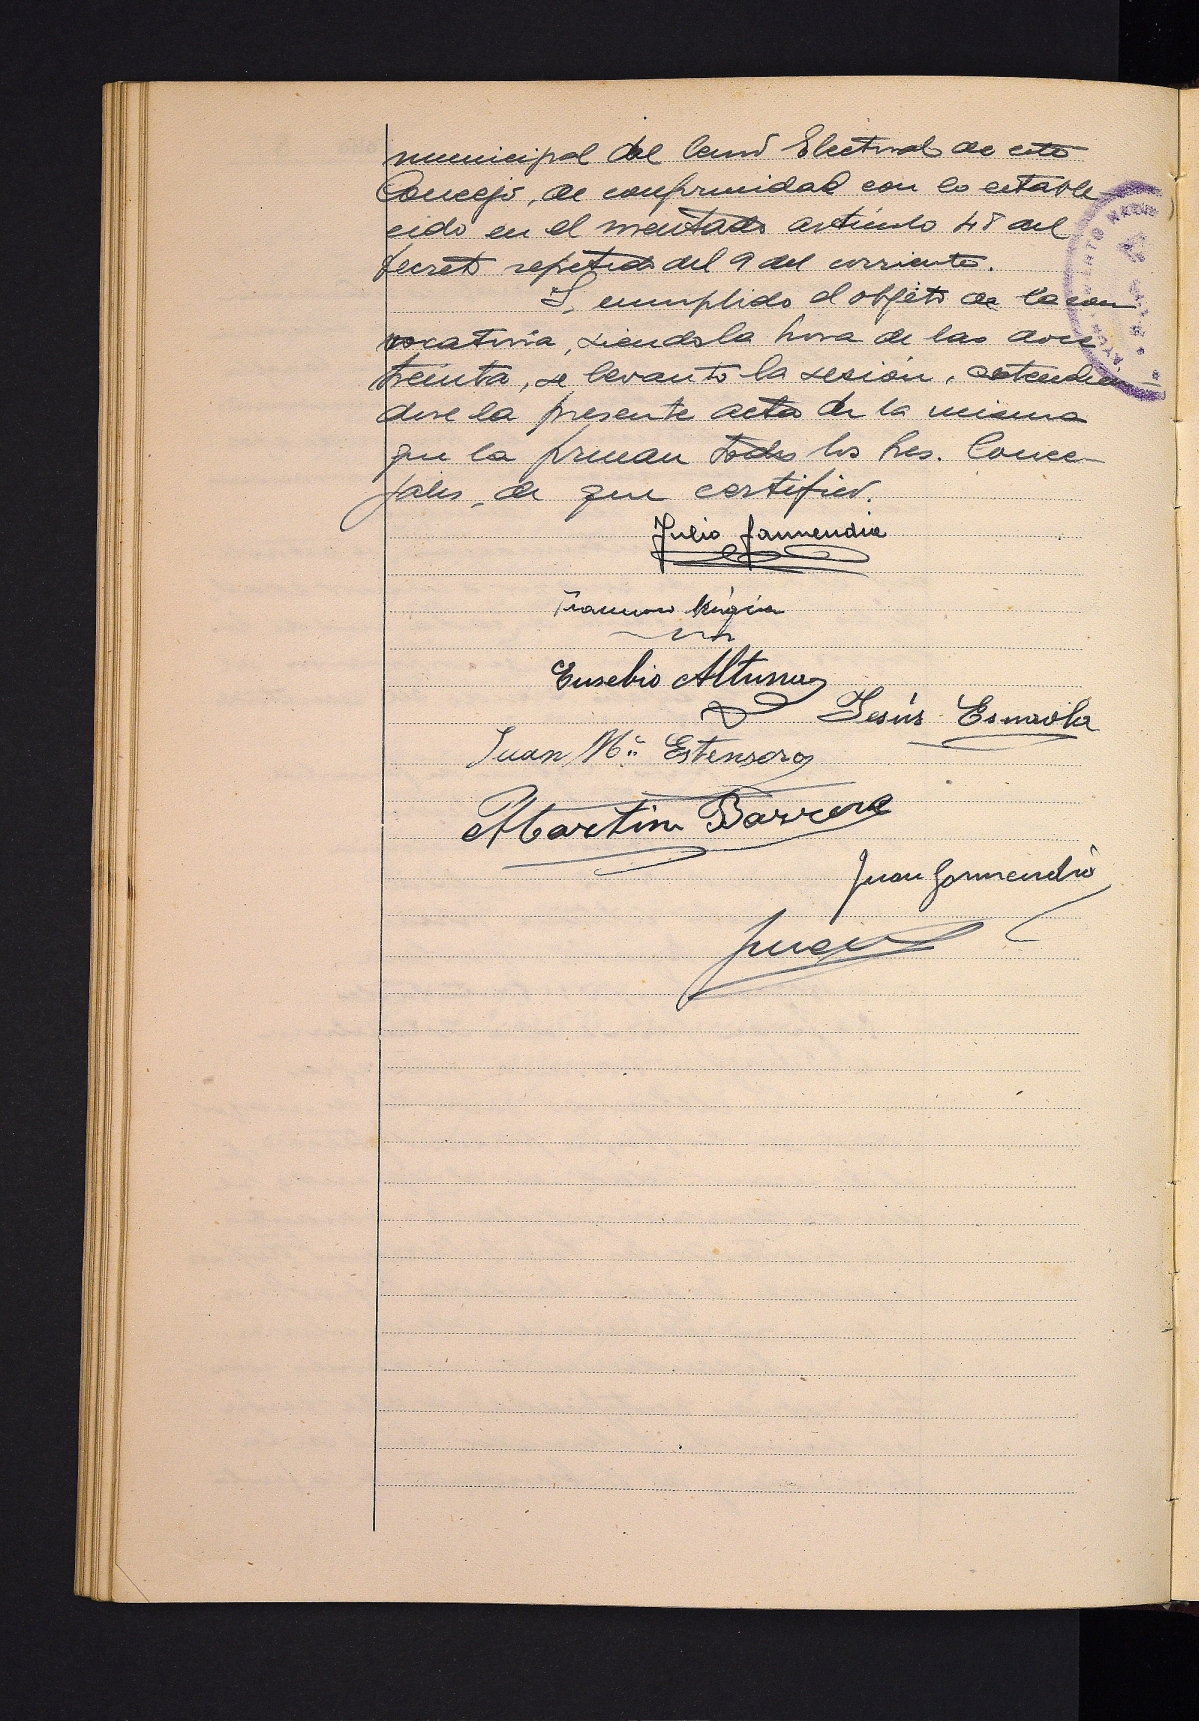 municipal del Censo Electoral de este
Concejo, de conformidad con lo estable-
cido en el mentado artículo 48 del
Decreto repetido del 9 del corriente.
Y, cumplido el objeto de la con
vocatoria, siendo la hora de las doce
treinta, se levantó la sesión, extendien
dose la presente acta de la misma
que la firman todos los Sres. Conce-
jales, de que certifico.
Julio Garmendia
Francisco Múgica
Eusebio Altuna
Jesús Esnaola
Juan Mª Estensoro
Martin Barrena
Juan Garmendia